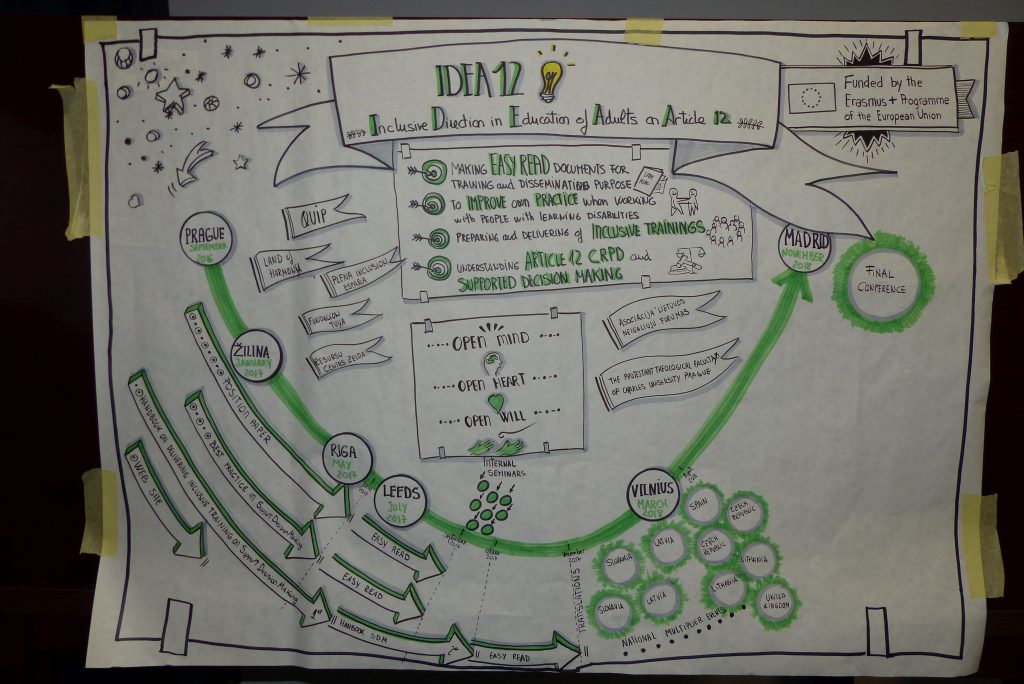 IDEA 12
Inclusive Direction in Education of Adults on Article 12
Funded by the
Erasmus + Programme
of the European Union
MAKING EASY READ DOCUMENTS FOR
TRAINING and DISSEMINATION PURPOSE
TO IMPROVE OWN PRACTICE when WORKING
with PEOPLE with LEARNING DISABILITIES
PREPARING and DELIVERING of INCLUSIVE TRAININGS
UNDERSTANDING ARTICLE 12 CRPD and
SUPPORTED DECISION MAKING
PRAGUE
SEPTEMBER
2016
QUIP
LAND of
HARMONY
PLENA INCLUSION
ESPAÑA
FUNDACION
TUYA
RESURSU
CENTRS ZELDA
ASOCIACIJA LIETUVOS
NEIGALIUJU FORUMAS
THE PROTESTANT THEOLOGICAL FACULTY
OF CHARLES UNIVERSITY PRAGUE
MADRID
NOVEMBER
2018
FINAL
CONFERENCE
ŽILINA
JANUARY
2017
OPEN MIND
OPEN HEART
OPEN WILL
INTERNAL
SEMINARS
RIGA
MAY
2017
LEEDS
JULY
2017
VILNIUS
MARCH
POSITION PAPER
BEST PRACTICE in Support Decision Making
HANDBOOK ON DELIVERING INCLUSIVE TRAINING ON Support Decision Making
WEB SITE
EASY READ
EASY READ
HANBOOK SDM
EASY READ
TRANSLATIONS
SPAIN
CZECH
REPUBLIC
LATVIA
CZECH
REPUBLIC
SLOVAKIA
LITHUANIA
LITHUANIA
SLOVAKIA
LATVIA
UNITED
KINGDOM
NATIONAL MULTIPLIER EVENTS